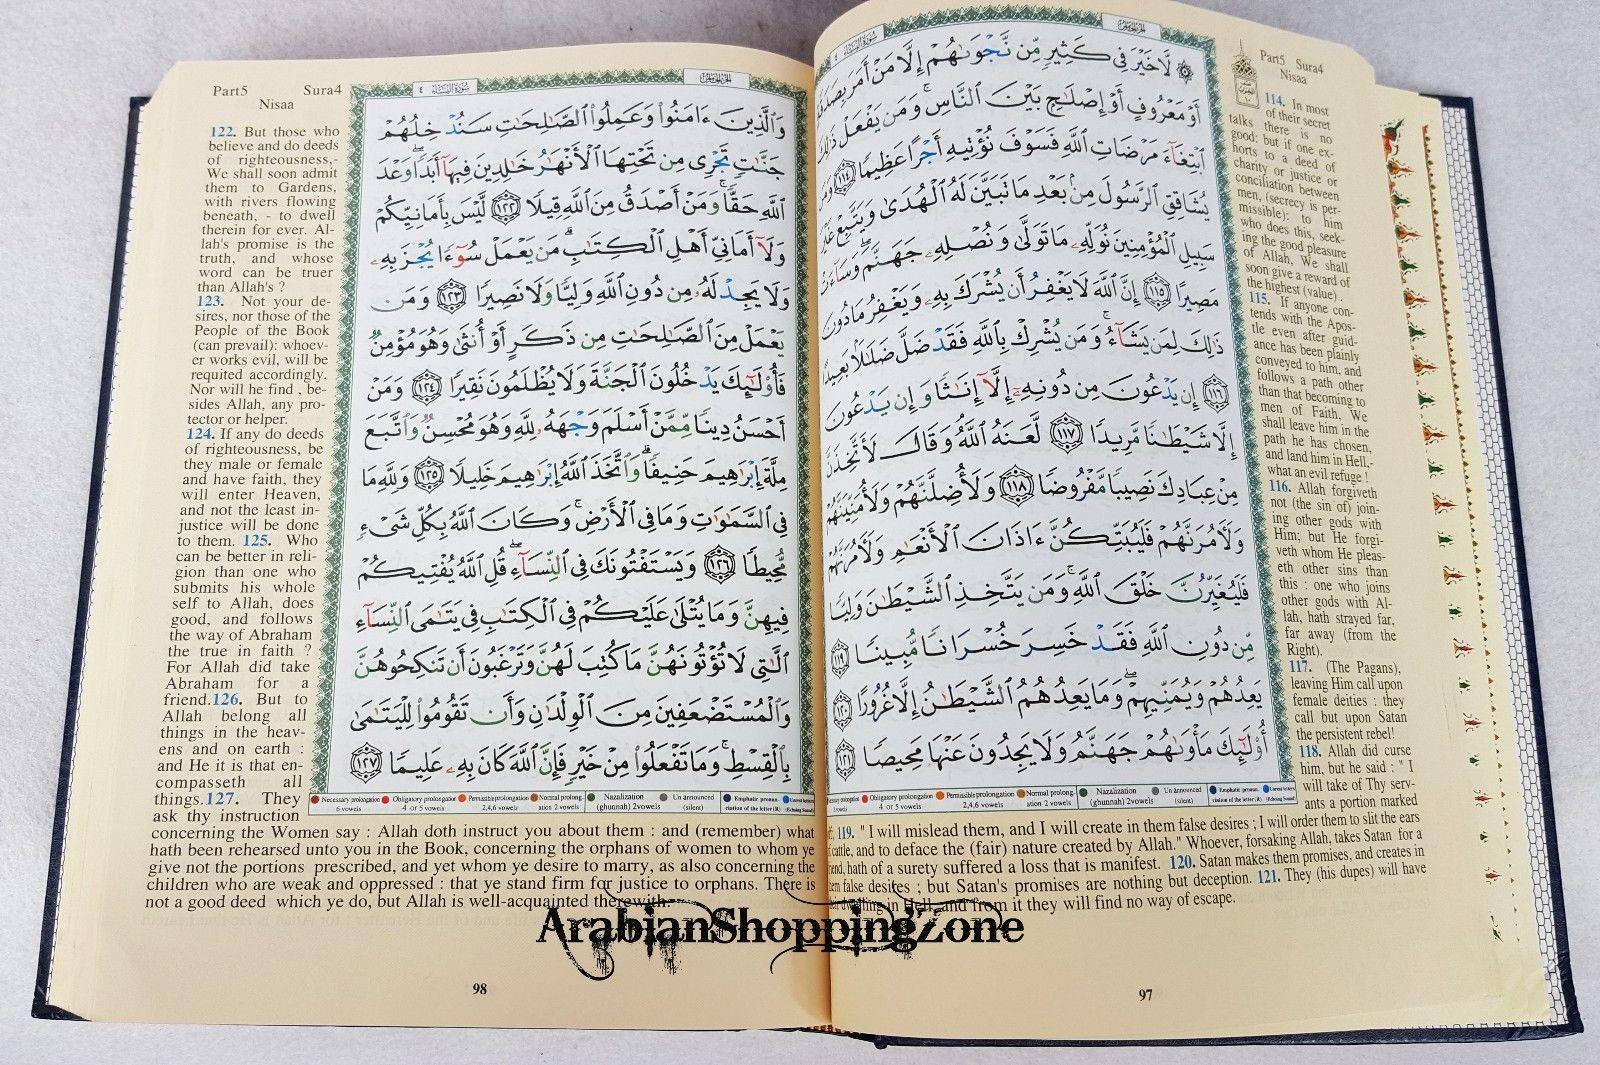 Part5 Sura4
Nisaa
الجزء الخامس
سورة النساء ٤
لَّا خَيْرَ فِي كَثِيرٍ مِّن نَّجْوَىٰهُمْ إِلَّا مَنْ أَمَرَ بِصَدَقَةٍ
أَوْ مَعْرُوفٍ أَوْ إِصْلَٰحٍ بَيْنَ النَّاسِ ۚ وَمَن يَفْعَلْ ذَٰلِكَ
ابْتِغَاءَ مَرْضَاتِ اللَّهِ فَسَوْفَ نُؤْتِيهِ أَجْرًا عَظِيمًا ١١٤ وَمَن
يُشَاقِقِ الرَّسُولَ مِن بَعْدِ مَا تَبَيَّنَ لَهُ الْهُدَىٰ وَيَتَّبِعْ غَيْرَ
سَبِيلِ الْمُؤْمِنِينَ نُوَلِّهِ مَا تَوَلَّىٰ وَنُصْلِهِ جَهَنَّمَ ۖ وَسَاءَتْ
مَصِيرًا ١١٥ إِنَّ اللَّهَ لَا يَغْفِرُ أَن يُشْرَكَ بِهِ وَيَغْفِرُ مَا دُونَ
ذَٰلِكَ لِمَن يَشَاءُ ۚ وَمَن يُشْرِكْ بِاللَّهِ فَقَدْ ضَلَّ ضَلَٰلًا بَعِيدًا
١١٦ إِن يَدْعُونَ مِن دُونِهِ إِلَّا إِنَٰثًا وَإِن يَدْعُونَ
إِلَّا شَيْطَٰنًا مَّرِيدًا ١١٧ لَّعَنَهُ اللَّهُ وَقَالَ لَأَتَّخِذَنَّ
مِنْ عِبَادِكَ نَصِيبًا مَّفْرُوضًا ١١٨ وَلَأُضِلَّنَّهُمْ وَلَأُمَنِّيَنَّهُمْ
وَلَءَامُرَنَّهُمْ فَلَيُبَتِّكُنَّ ءَاذَانَ الْأَنْعَٰمِ وَلَءَامُرَنَّهُمْ
فَلَيُغَيِّرُنَّ خَلْقَ اللَّهِ ۚ وَمَن يَتَّخِذِ الشَّيْطَٰنَ وَلِيًّا
مِّن دُونِ اللَّهِ فَقَدْ خَسِرَ خُسْرَانًا مُّبِينًا ١١٩
يَعِدُهُمْ وَيُمَنِّيهِمْ ۖ وَمَا يَعِدُهُمُ الشَّيْطَٰنُ إِلَّا غُرُورًا ١٢٠
أُولَٰئِكَ مَأْوَىٰهُمْ جَهَنَّمُ وَلَا يَجِدُونَ عَنْهَا مَحِيصًا ١٢١
114. In most
of their secret
talks there is no
good: but if one ex-
horts to a deed of
charity or justice or
conciliation between
men, (secrecy is per-
missible): to him
who does this, seek-
ing the good pleasure
of Allah, We shall
soon give a reward of
the highest (value) .
115. If anyone con-
tends with the Apos-
tle even after guid-
ance has been plainly
conveyed to him, and
follows a path other
than that becoming to
men of Faith, We
shall leave him in the
path he has chosen,
and land him in Hell,-
what an evil refuge !
116. Allah forgiveth
not (the sin of) join-
ing other gods with
Him; but He forgi-
veth whom He pleas-
eth other sins than
this : one who joins
other gods with Al-
lah, hath strayed far,
far away (from the
Right).
117. (The Pagans),
leaving Him call upon
female deities : they
call but upon Satan
the persistent rebel!
118. Allah did curse
him, but he said : " I
will take of Thy serv-
ants a portion marked
119. " I will mislead them, and I will create in them false desires ; I will order them to slit the ears
cattle, and to deface the (fair) nature created by Allah." Whoever, forsaking Allah, takes Satan for a
hath of a surety suffered a loss that is manifest. 120. Satan makes them promises, and creates in
false desires ; but Satan's promises are nothing but deception. 121. They (his dupes) will have
in Hell, and from it they will find no way of escape.
97
Part5 Sura4
Nisaa
سورة النساء ٤
الجزء الخامس
وَالَّذِينَ ءَامَنُوا وَعَمِلُوا الصَّٰلِحَٰتِ سَنُدْخِلُهُمْ
جَنَّٰتٍ تَجْرِي مِن تَحْتِهَا الْأَنْهَٰرُ خَٰلِدِينَ فِيهَا أَبَدًا ۖ وَعْدَ
اللَّهِ حَقًّا ۚ وَمَنْ أَصْدَقُ مِنَ اللَّهِ قِيلًا ١٢٢ لَّيْسَ بِأَمَانِيِّكُمْ
وَلَا أَمَانِيِّ أَهْلِ الْكِتَٰبِ ۗ مَن يَعْمَلْ سُوءًا يُجْزَ بِهِ
وَلَا يَجِدْ لَهُ مِن دُونِ اللَّهِ وَلِيًّا وَلَا نَصِيرًا ١٢٣ وَمَن
يَعْمَلْ مِنَ الصَّٰلِحَٰتِ مِن ذَكَرٍ أَوْ أُنثَىٰ وَهُوَ مُؤْمِنٌ
فَأُولَٰئِكَ يَدْخُلُونَ الْجَنَّةَ وَلَا يُظْلَمُونَ نَقِيرًا ١٢٤ وَمَنْ
أَحْسَنُ دِينًا مِّمَّنْ أَسْلَمَ وَجْهَهُ لِلَّهِ وَهُوَ مُحْسِنٌ وَاتَّبَعَ
مِلَّةَ إِبْرَٰهِيمَ حَنِيفًا ۗ وَاتَّخَذَ اللَّهُ إِبْرَٰهِيمَ خَلِيلًا ١٢٥ وَلِلَّهِ مَا
فِي السَّمَٰوَٰتِ وَمَا فِي الْأَرْضِ ۚ وَكَانَ اللَّهُ بِكُلِّ شَيْءٍ
مُّحِيطًا ١٢٦ وَيَسْتَفْتُونَكَ فِي النِّسَاءِ ۖ قُلِ اللَّهُ يُفْتِيكُمْ
فِيهِنَّ وَمَا يُتْلَىٰ عَلَيْكُمْ فِي الْكِتَٰبِ فِي يَتَٰمَى النِّسَاءِ
الَّٰتِي لَا تُؤْتُونَهُنَّ مَا كُتِبَ لَهُنَّ وَتَرْغَبُونَ أَن تَنكِحُوهُنَّ
وَالْمُسْتَضْعَفِينَ مِنَ الْوِلْدَٰنِ وَأَن تَقُومُوا لِلْيَتَٰمَىٰ
بِالْقِسْطِ ۚ وَمَا تَفْعَلُوا مِنْ خَيْرٍ فَإِنَّ اللَّهَ كَانَ بِهِ عَلِيمًا ١٢٧
Necessary prolongation 6 vowels
Obligatory prolongation 4 or 5 vowels
Permissible prolongation 2,4,6 vowels
Normal prolongation 2 vowels
Nazalization (ghunnah) 2vowels
Un announced (silent)
122. But those who
believe and do deeds
of righteousness,-
We shall soon admit
them to Gardens,
with rivers flowing
beneath, - to dwell
therein for ever. Al-
lah's promise is the
truth, and whose
word can be truer
than Allah's ?
123. Not your de-
sires, nor those of the
People of the Book
(can prevail): whoev-
er works evil, will be
requited accordingly.
Nor will he find , be-
sides Allah, any pro-
tector or helper.
124. If any do deeds
of righteousness, be
they male or female
and have faith, they
will enter Heaven,
and not the least in-
justice will be done
to them. 125. Who
can be better in reli-
gion than one who
submits his whole
self to Allah, does
good, and follows
the way of Abraham
the true in faith ?
For Allah did take
Abraham for a
friend.126. But to
Allah belong all
things in the heav-
ens and on earth :
and He it is that en-
compasseth all
things.127. They
ask thy instruction
concerning the Women say : Allah doth instruct you about them : and (remember) what
hath been rehearsed unto you in the Book, concerning the orphans of women to whom ye
give not the portions prescribed, and yet whom ye desire to marry, as also concerning the
children who are weak and oppressed : that ye stand firm for justice to orphans. There is
not a good deed which ye do, but Allah is well-acquainted therewith.
98
ArabianShoppingZone